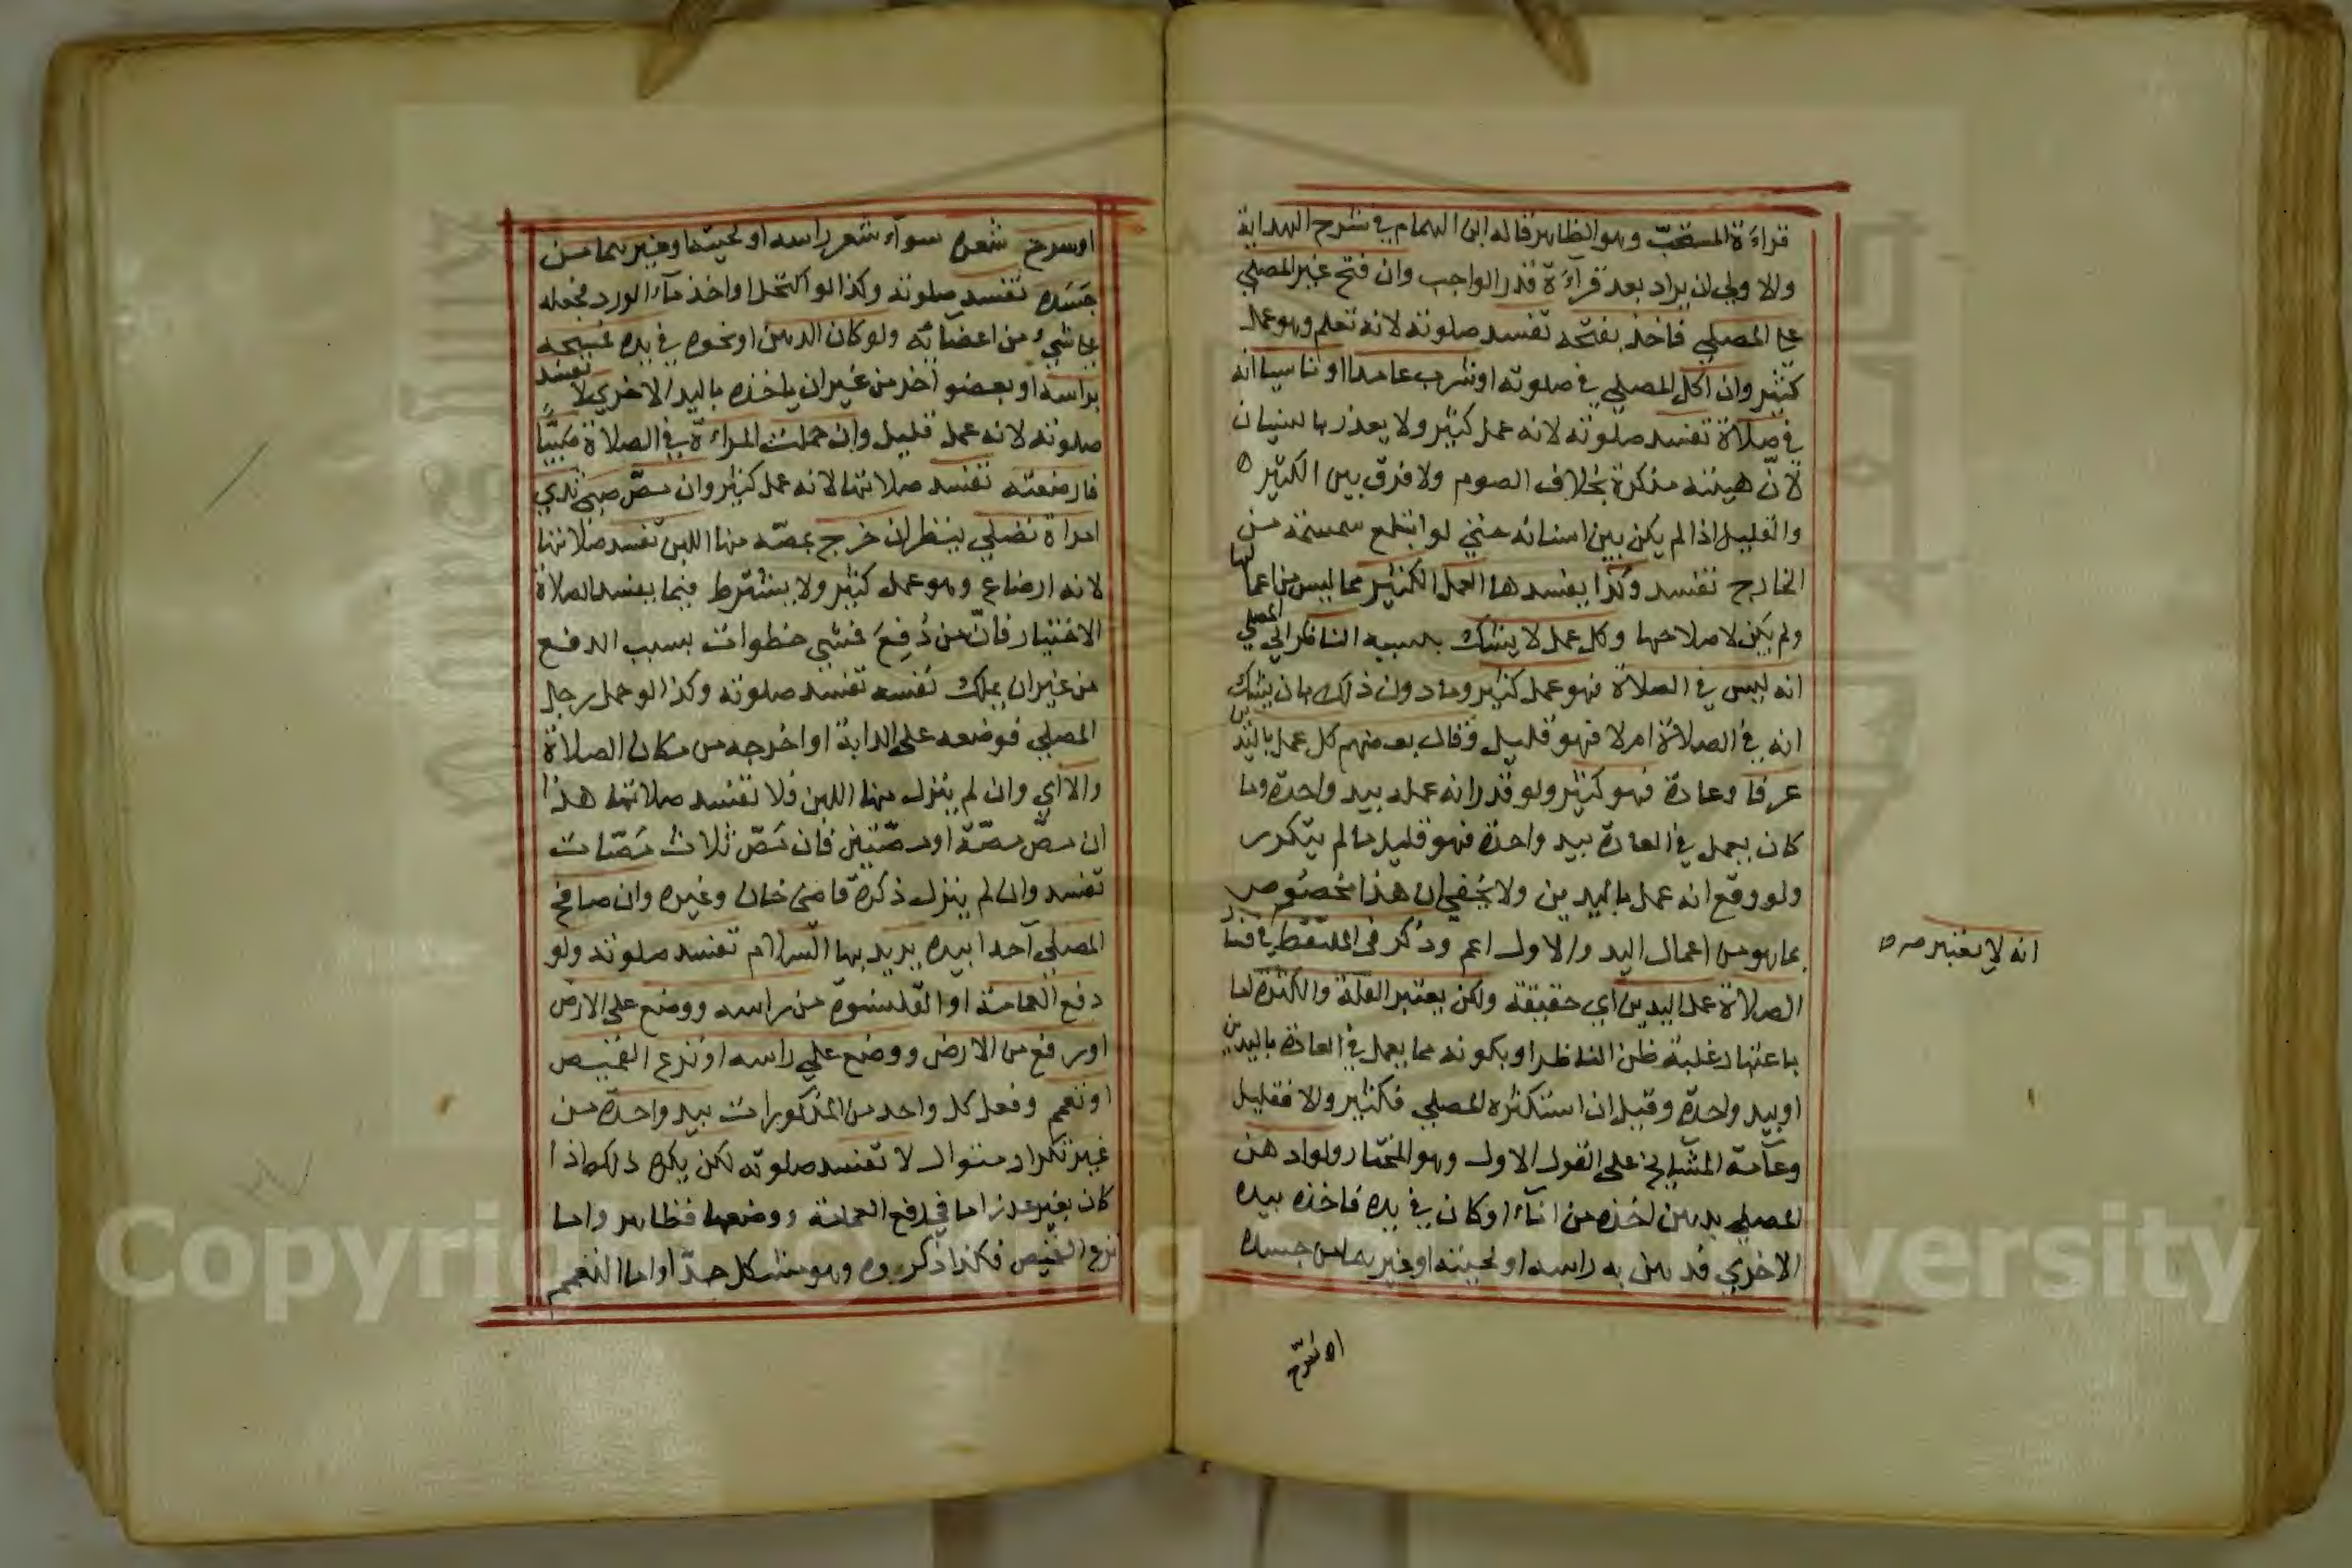 قراءة المستحبّ وهو الظاهر قاله ابن الهمام في شرح الهداية
والاولى ان يراد بعد قرآءة قدر الواجب وان فتح غير المصلي
على المصلي فاخذ بفتحه تفسد صلوته لانه تعلم وهو عمل
كثير وان اكل المصلي في صلوته او شرب عامدا او ناسيا انه
في صلاة تفسد صلوته لانه عمل كثير ولا يعذر بالنسيان
لانّ هيئته مذكرة بخلاف الصوم ولا فرق بين الكثير
والقليل اذا لم يكن بين اسنانه حتي لو ابتلع سمسمة من
الخارج تفسد وكذا يفسدها العمل الكثير مما ليس من اعمالها
ولم يكن لاصلاحها وكل عمل لا يشك بسببه الناظر الي المصلي
انه ليس في الصلاة فهو عمل كثير وما دون ذلك بان يشك
انه في الصلاة ام لا فهو قليل وقال بعضهم كل عمل باليدين
عرفا وعادة فهو كثير ولو قدر انه عمله بيد واحدة وما
كان يعمل في العادة بيد واحدة فهو قليل ما لم يتكرر
ولو وقع انه عمل باليدين ولا يخفى ان هذا مخصوص
بما هو من اعمال اليد والاول اعم وذكر في الملتقط في فساد
الصلاة عمل اليدين اي حقيقة ولكن يعتبر القلة والكثرة اما
باعتبار غلبة ظن الناظر او بكونه مما يعمل في العادة باليدين
او بيد واحدة وقيل ان استكثره المصلي فكثير والا فقليل
وعآمة المشايخ على القول الاول وهو المختار ولو ادهن
المصلي بدهن اخذه من انآء او كان في يده فاخذه بيده
الاخري فدهن به راسه او لحيته او غيرهما من جسده
انه لا يعتبر صح
او سرّح
او سرح شعره سوآء شعر راسه او لحيته او غيرهما من
جَسَده تفسد صلوته وكذا لو اكتحل او اخذ مآء الورد فجعله
على شيء من اعضائه ولو كان الدهن او نحوه في يده فمسحه
براسه او بعضو آخر من غير ان ياخذه باليد الاخري لا تفسد
صلوته لانه عمل قليل وان حملت المراءة في الصلاة صَبيًّا
فارضعته تفسد صلاتها لانه عمل كثير وان مصّ صبي ثدي
امراة تصلي ينظر ان خرج بمصّه منها اللبن تفسد صلاتها
لانه ارضاع وهو عمل كثير ولا يشترط فيما يفسد الصلاة
الاختيار فانّ من دُفِعَ فمشي خطوات بسبب الدفع
من غير ان يملك نفسه تفسد صلوته وكذا لو حمل رجل
المصلي فوضعه على الدابة او اخرجه من مكان الصلاة
والا اي وان لم ينزل منها اللبن فلا تفسد صلاتها هذا
ان مصّ مصّة او مصّتين فان مَصّ ثلاث مَصّات
تفسد وان لم ينزل ذكره قاضي خان وغيره وان صافح
المصلي آحدا بيده يريد بها السلام تفسد صلوته ولو
دفع العمامة او القلنسوة من راسه ووضع على الارض
او رفع من الارض ووضع على راسه او نزع القميص
او تعمم وفعل كل واحد من المذكورات بيد واحدة من
غير تكرار متوال لا تفسد صلوته لكن يكره ذلك اذا
كان بغير عذر اما في رفع العمامة ووضعها فظاهر واما
نزع القميص فكذا ذكروه وهو مشكل جدّا واما التعمم